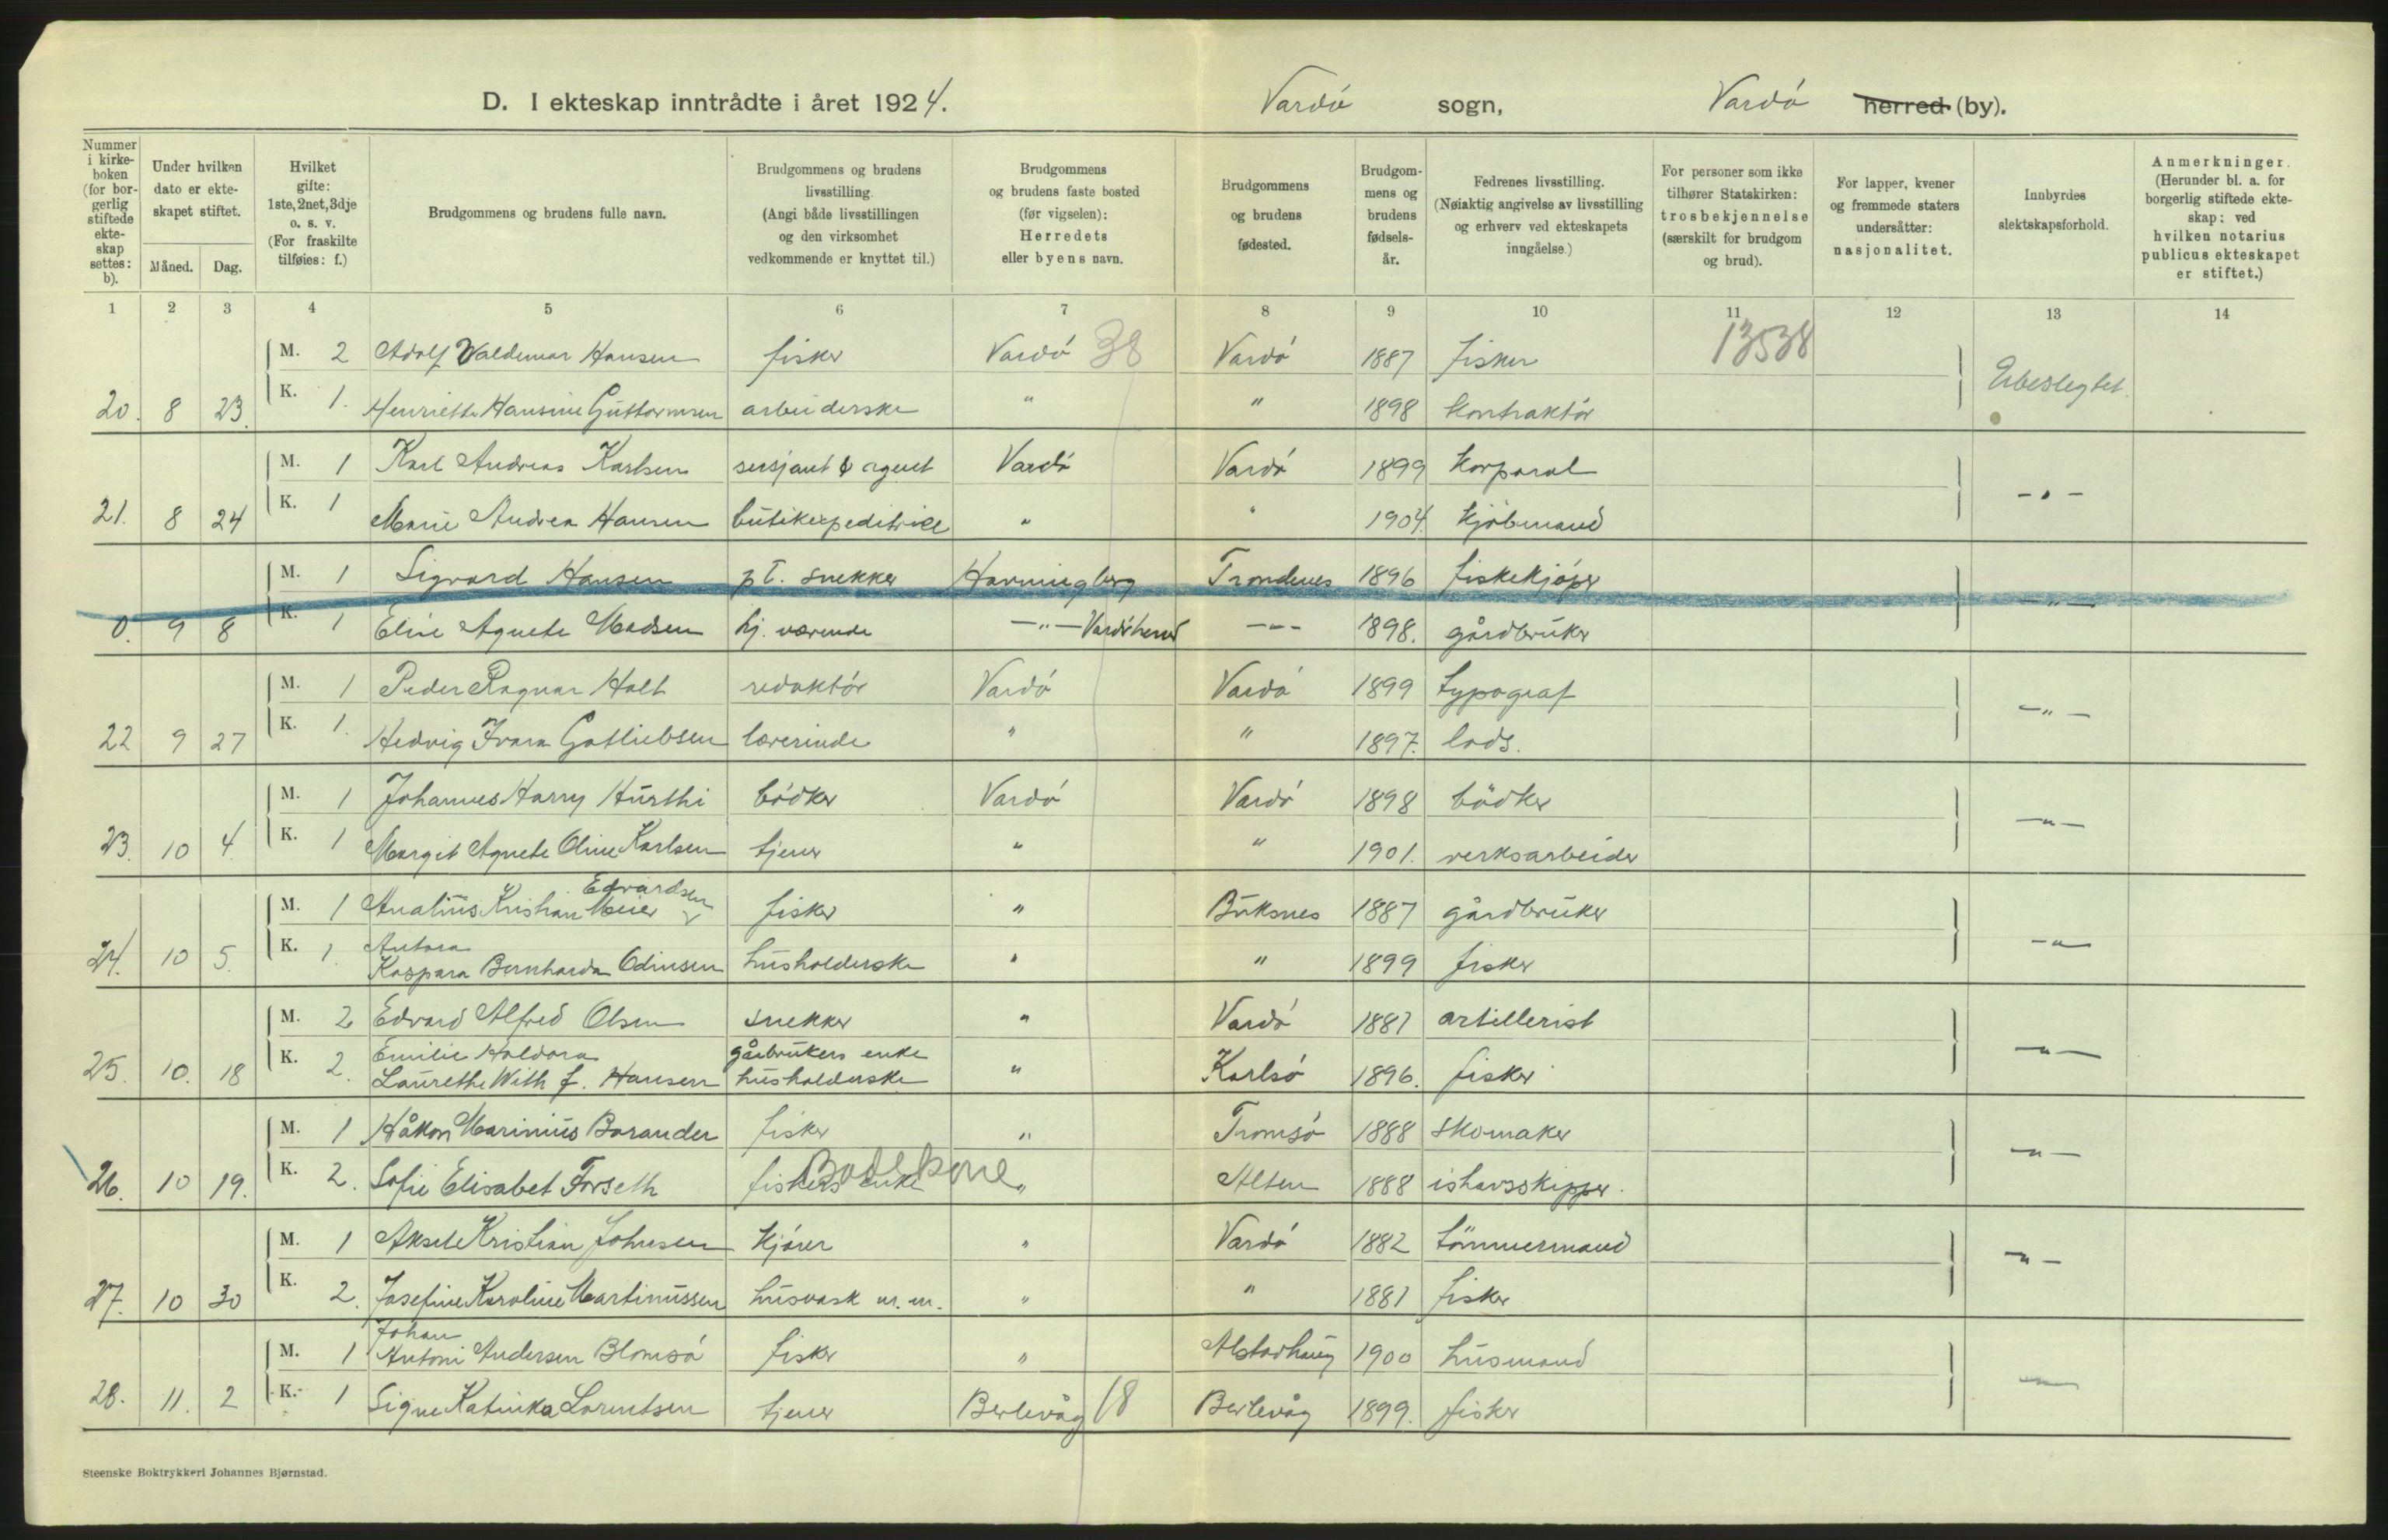 D. I ekteskap inntrådte i året 1924. Vardø sogn, Vardø herred (by).
Nummer i kirkeboken (for borgerlig stiftede ekteskap settes: b).
Under hvilken dato er ekteskapet stiftet.
Måned. Dag.
Hvilket gifte: 1ste, 2net, 3dje o. s. v. (For fraskilte tilføies: f.)
Brudgommens og brudens fulle navn.
Brudgommens og brudens livsstilling. (Angi både livsstillingen og den virksomhet vedkommende er knyttet til.)
Brudgommens og brudens faste bosted (før vigselen): Herredets eller byens navn.
Brudgommens og brudens fødested.
Brudgommens og brudens fødselsår.
Fedrenes livsstilling. (Nøiaktig angivelse av livsstilling og erhverv ved ekteskapets inngåelse.)
For personer som ikke tilhører Statskirken: trosbekjennelse (særskilt for brudgom og brud).
For lapper, kvener og fremmede staters undersåtter: nasjonalitet.
Innbyrdes slektskapsforhold.
Anmerkninger. (Herunder bl. a. for borgerlig stiftede ekteskap: ved hvilken notarius publicus ekteskapet er stiftet.)
1 2 3 4 5 6 7 8 9 10 11 12 13 14
M. 2 Adolf Valdemar Hansen fisker Vardø 38 Vardø 1887 fisker 13538
20. 8 23. K. 1. Henriette Hansine Guttormsen arbeiderske " " 1898 kontraktør Ubeslegtet.
M. 1 Karl Andreas Karlsen sersjant & agent Vardø Vardø 1899 korporal
21. 8 24 K. 1 Marie Andrea Hansen butikexpeditrice " " 1904. kjøbmand - " -
M. 1 Sigvard Hansen p t. snekker Havningberg Trondenes 1896 fiskekjøper
0. 9 8 K. 1 Eline Agnete Madsen hj. værende - " - Vardø herred - " - 1898. gårdbruker - " -
M. 1 Peder Ragnar Holt redaktør Vardø Vardø 1899 typograf
22 9 27 K. 1. Hedvig Ivara Gotliebsen lærerinde " " 1897. lods. - " -
M. 1 Johannes Harry Hurthi bødker Vardø Vardø 1898 bødker
23. 10 4. K. 1 Margit Agnete Oline Karlsen tjener " " 1901. verksarbeider - " -
M. 1 Analius Kristian Meier Edvardsen fisker " Buksnes 1887 gårdbruker
24. 10 5. K. 1. Antora Kaspara Bernharda Odinsen husholderske " " 1899 fisker - " -
M. 2 Edvard Alfred Olsen snekker " Vardø 1881 artillerist
25. 10. 18 K. 2. Emilie Haldora Laurethe With f. Hansen gårbrukers enke husholderske " Karlsø 1896. fisker - " -
M. 1 Håkon Marinius Borander fisker " Tromsø 1888 skomaker
26. 10 19. K. 2. Sofie Elisabet Forseth fiskers enke " Alten 1888 ishavsskipper. - " -
M. 1 Aksel Kristian Johnsen kjører " Vardø 1882 tømmermand
27. 10 30 K. 2. Josefine Karoline Martinussen husvask m. m. " " 1881 fisker - " -
M. 1 Johan Antoni Andersen Blomsø fisker " Alstadhaug 1900 husmand
28. 11. 2 K. 1 Signe Katinka Lorentsen tjener Berlevåg 18 Berlevåg 1899. fisker - " -
Steenske Boktrykkeri Johannes Bjørnstad.